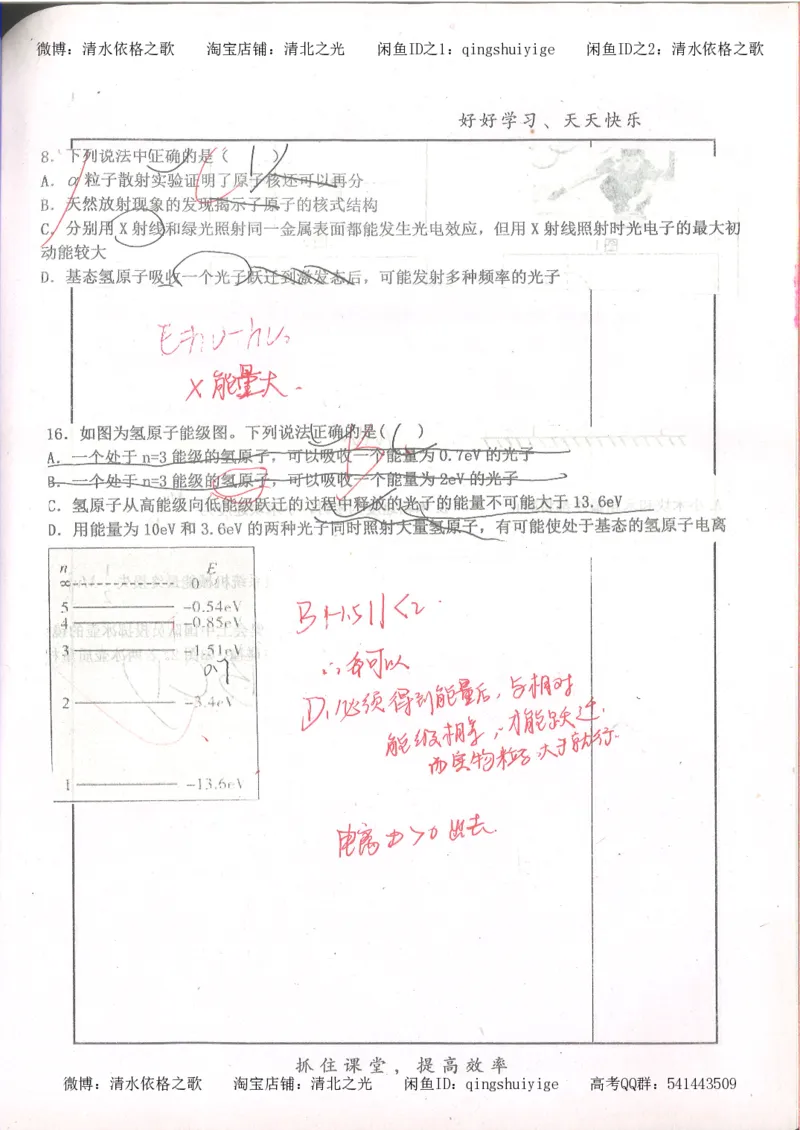 微博：清水依格之歌 淘宝店铺：清北之光 闲鱼ID之1：qingshuiyige 闲鱼ID之2：清水依格之歌
好好学习、天天快乐
8. 下列说法中正确的是（ ）
A. α粒子散射实验证明了原子核还可以再分
B. 天然放射现象的发现揭示了原子的核式结构
C. 分别用 X 射线和绿光照射同一金属表面都能发生光电效应，但用 X 射线照射时光电子的最大初
动能较大
D. 基态氢原子吸收一个光子跃迁到激发态后，可能发射多种频率的光子
E=hν-hν₀
X能量大.
16. 如图为氢原子能级图。下列说法正确的是( )
A. 一个处于 n=3 能级的氢原子，可以吸收一个能量为 0.7eV 的光子
B. 一个处于 n=3 能级的氢原子，可以吸收一个能量为 2eV 的光子
C. 氢原子从高能级向低能级跃迁的过程中释放的光子的能量不可能大于 13.6eV
D. 用能量为 10eV 和 3.6eV 的两种光子同时照射大量氢原子，有可能使处于基态的氢原子电离
n E
∞ 0
5 -0.54eV
4 -0.85eV
3 -1.51eV
0.7
2 -3.4eV
1 -13.6eV
B |-1.51|<2
∴可以
D. 必须得到能量后，与相对
能级相等，才能跃迁.
而实物粒子大于就行.
电离 >0
抓住课堂，提高效率
微博：清水依格之歌 淘宝店铺：清北之光 闲鱼ID：qingshuiyige 高考QQ群：541443509